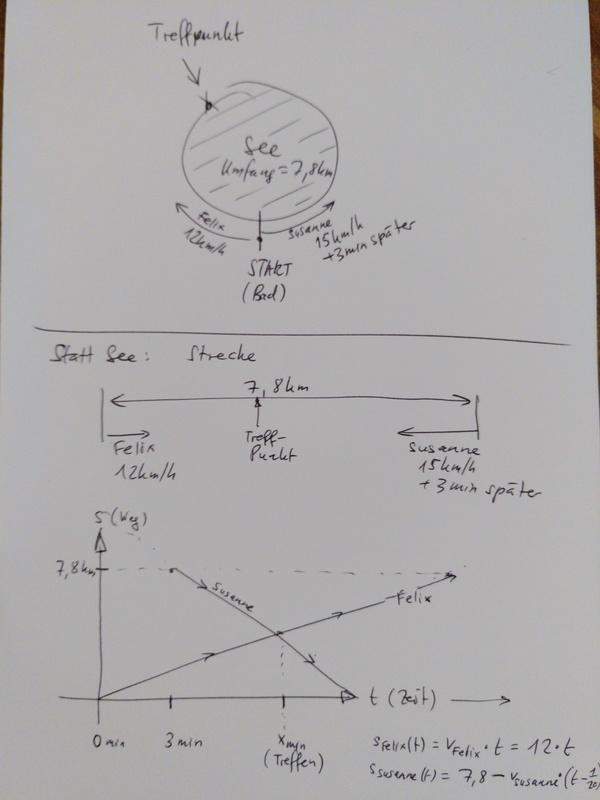 Treffpunkt
See
Umfang = 7,8km
Felix
12km/h
Susanne
15km/h
+3min später
START
(Bad)
Statt See: Strecke
7,8km
Felix
12km/h
Treff-
Punkt
Susanne
15km/h
+3min später
S (Weg)
7,8km
Susanne
Felix
t (Zeit)
0min
3min
xmin
(Treffen)
sFelix(t) = vFelix · t = 12 · t
sSusanne(t) = 7,8 - vSusanne · (t - 1/20)